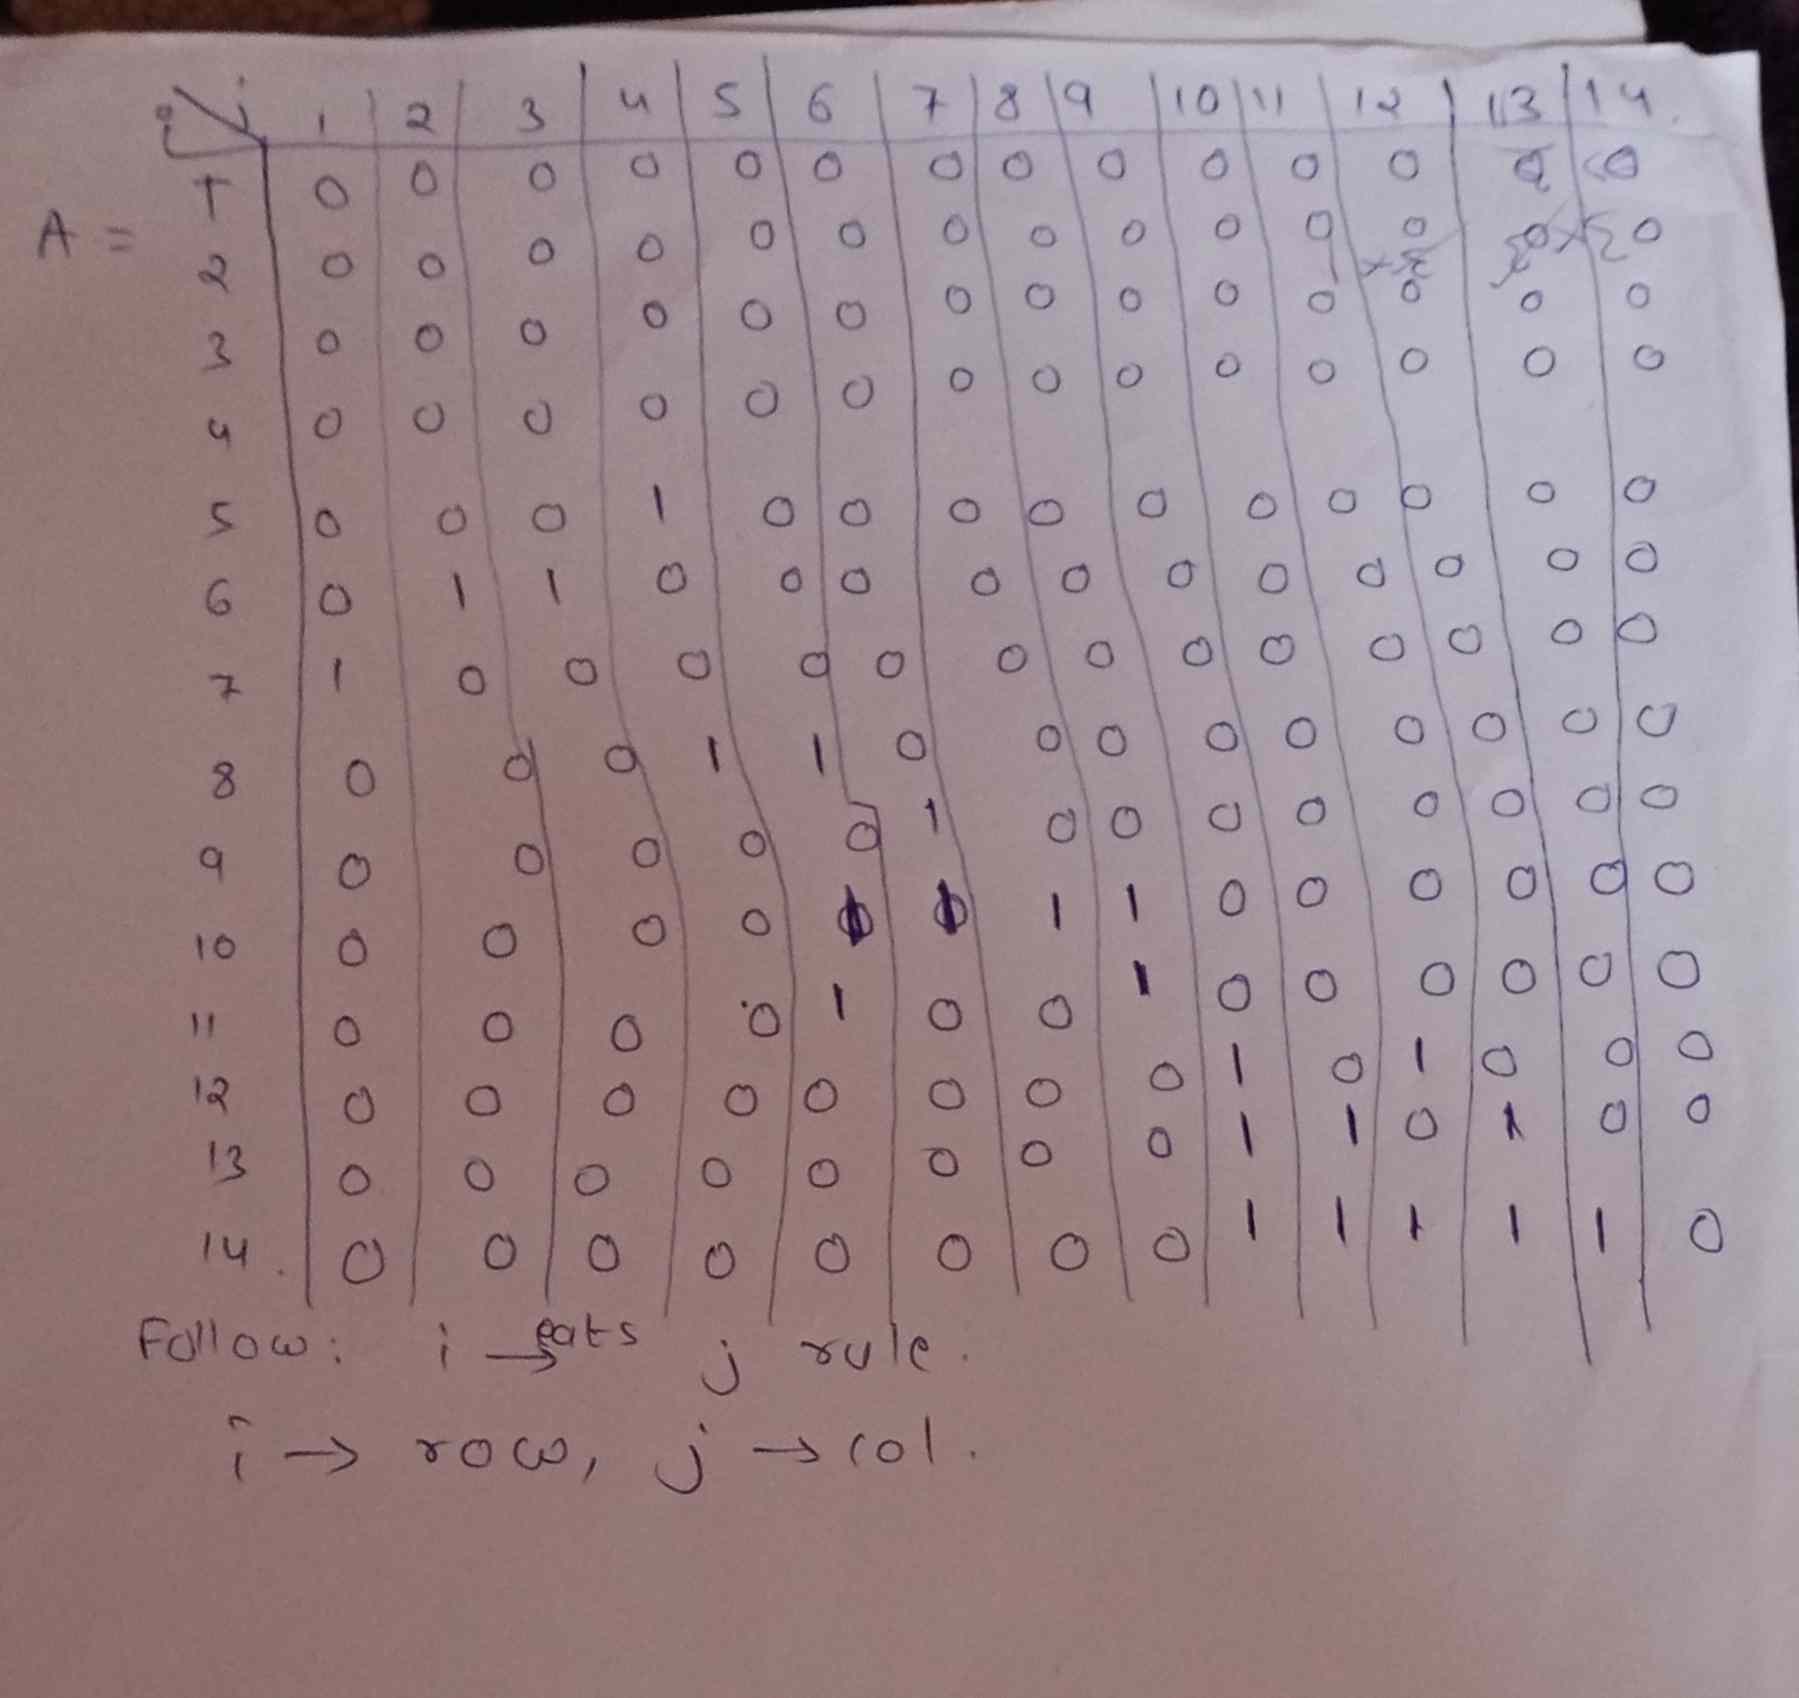 i\j 1 2 3 4 5 6 7 8 9 10 11 12 13 14.
1 0 0 0 0 0 0 0 0 0 0 0 0 0 0
A = 2 0 0 0 0 0 0 0 0 0 0 0 0 0 0
3 0 0 0 0 0 0 0 0 0 0 0 0 0 0
4 0 0 0 0 0 0 0 0 0 0 0 0 0 0
5 0 0 0 1 0 0 0 0 0 0 0 0 0 0
6 0 1 1 0 0 0 0 0 0 0 0 0 0 0
7 1 0 0 0 0 0 0 0 0 0 0 0 0 0
8 0 0 0 1 1 0 0 0 0 0 0 0 0 0
9 0 0 0 0 0 1 0 0 0 0 0 0 0 0
10 0 0 0 0 1 1 1 1 0 0 0 0 0 0
11 0 0 0 0 1 0 0 1 0 0 0 0 0 0
12 0 0 0 0 0 0 0 0 1 0 1 0 0 0
13 0 0 0 0 0 0 0 0 1 1 0 1 0 0
14. 0 0 0 0 0 0 0 0 1 1 1 1 1 0
Follow: i → eats j rule.
i → row, j → col.